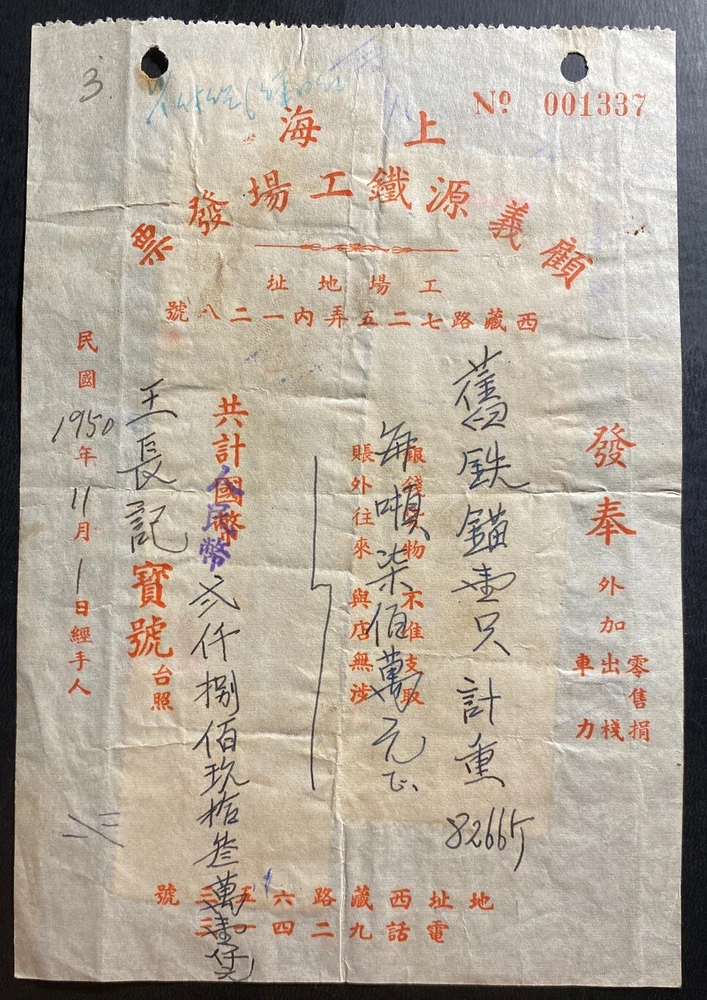 3.
上海
Nº 001337
顧義源鐵工場發票
工場地址
西藏路七二五弄內一二八號
發奉
外加
零售捐
出棧
車力
舊鉄錨壹只計重8266斤
銀錢貨物不准支取
賬外往來與店無涉
每噸柒佰萬元正
共計國幣
人民幣
弍仟捌佰玖拾叁萬壹仟
王長記寶號台照
民國1950年11月1日經手人
地址西藏路六五三號
電話九二四